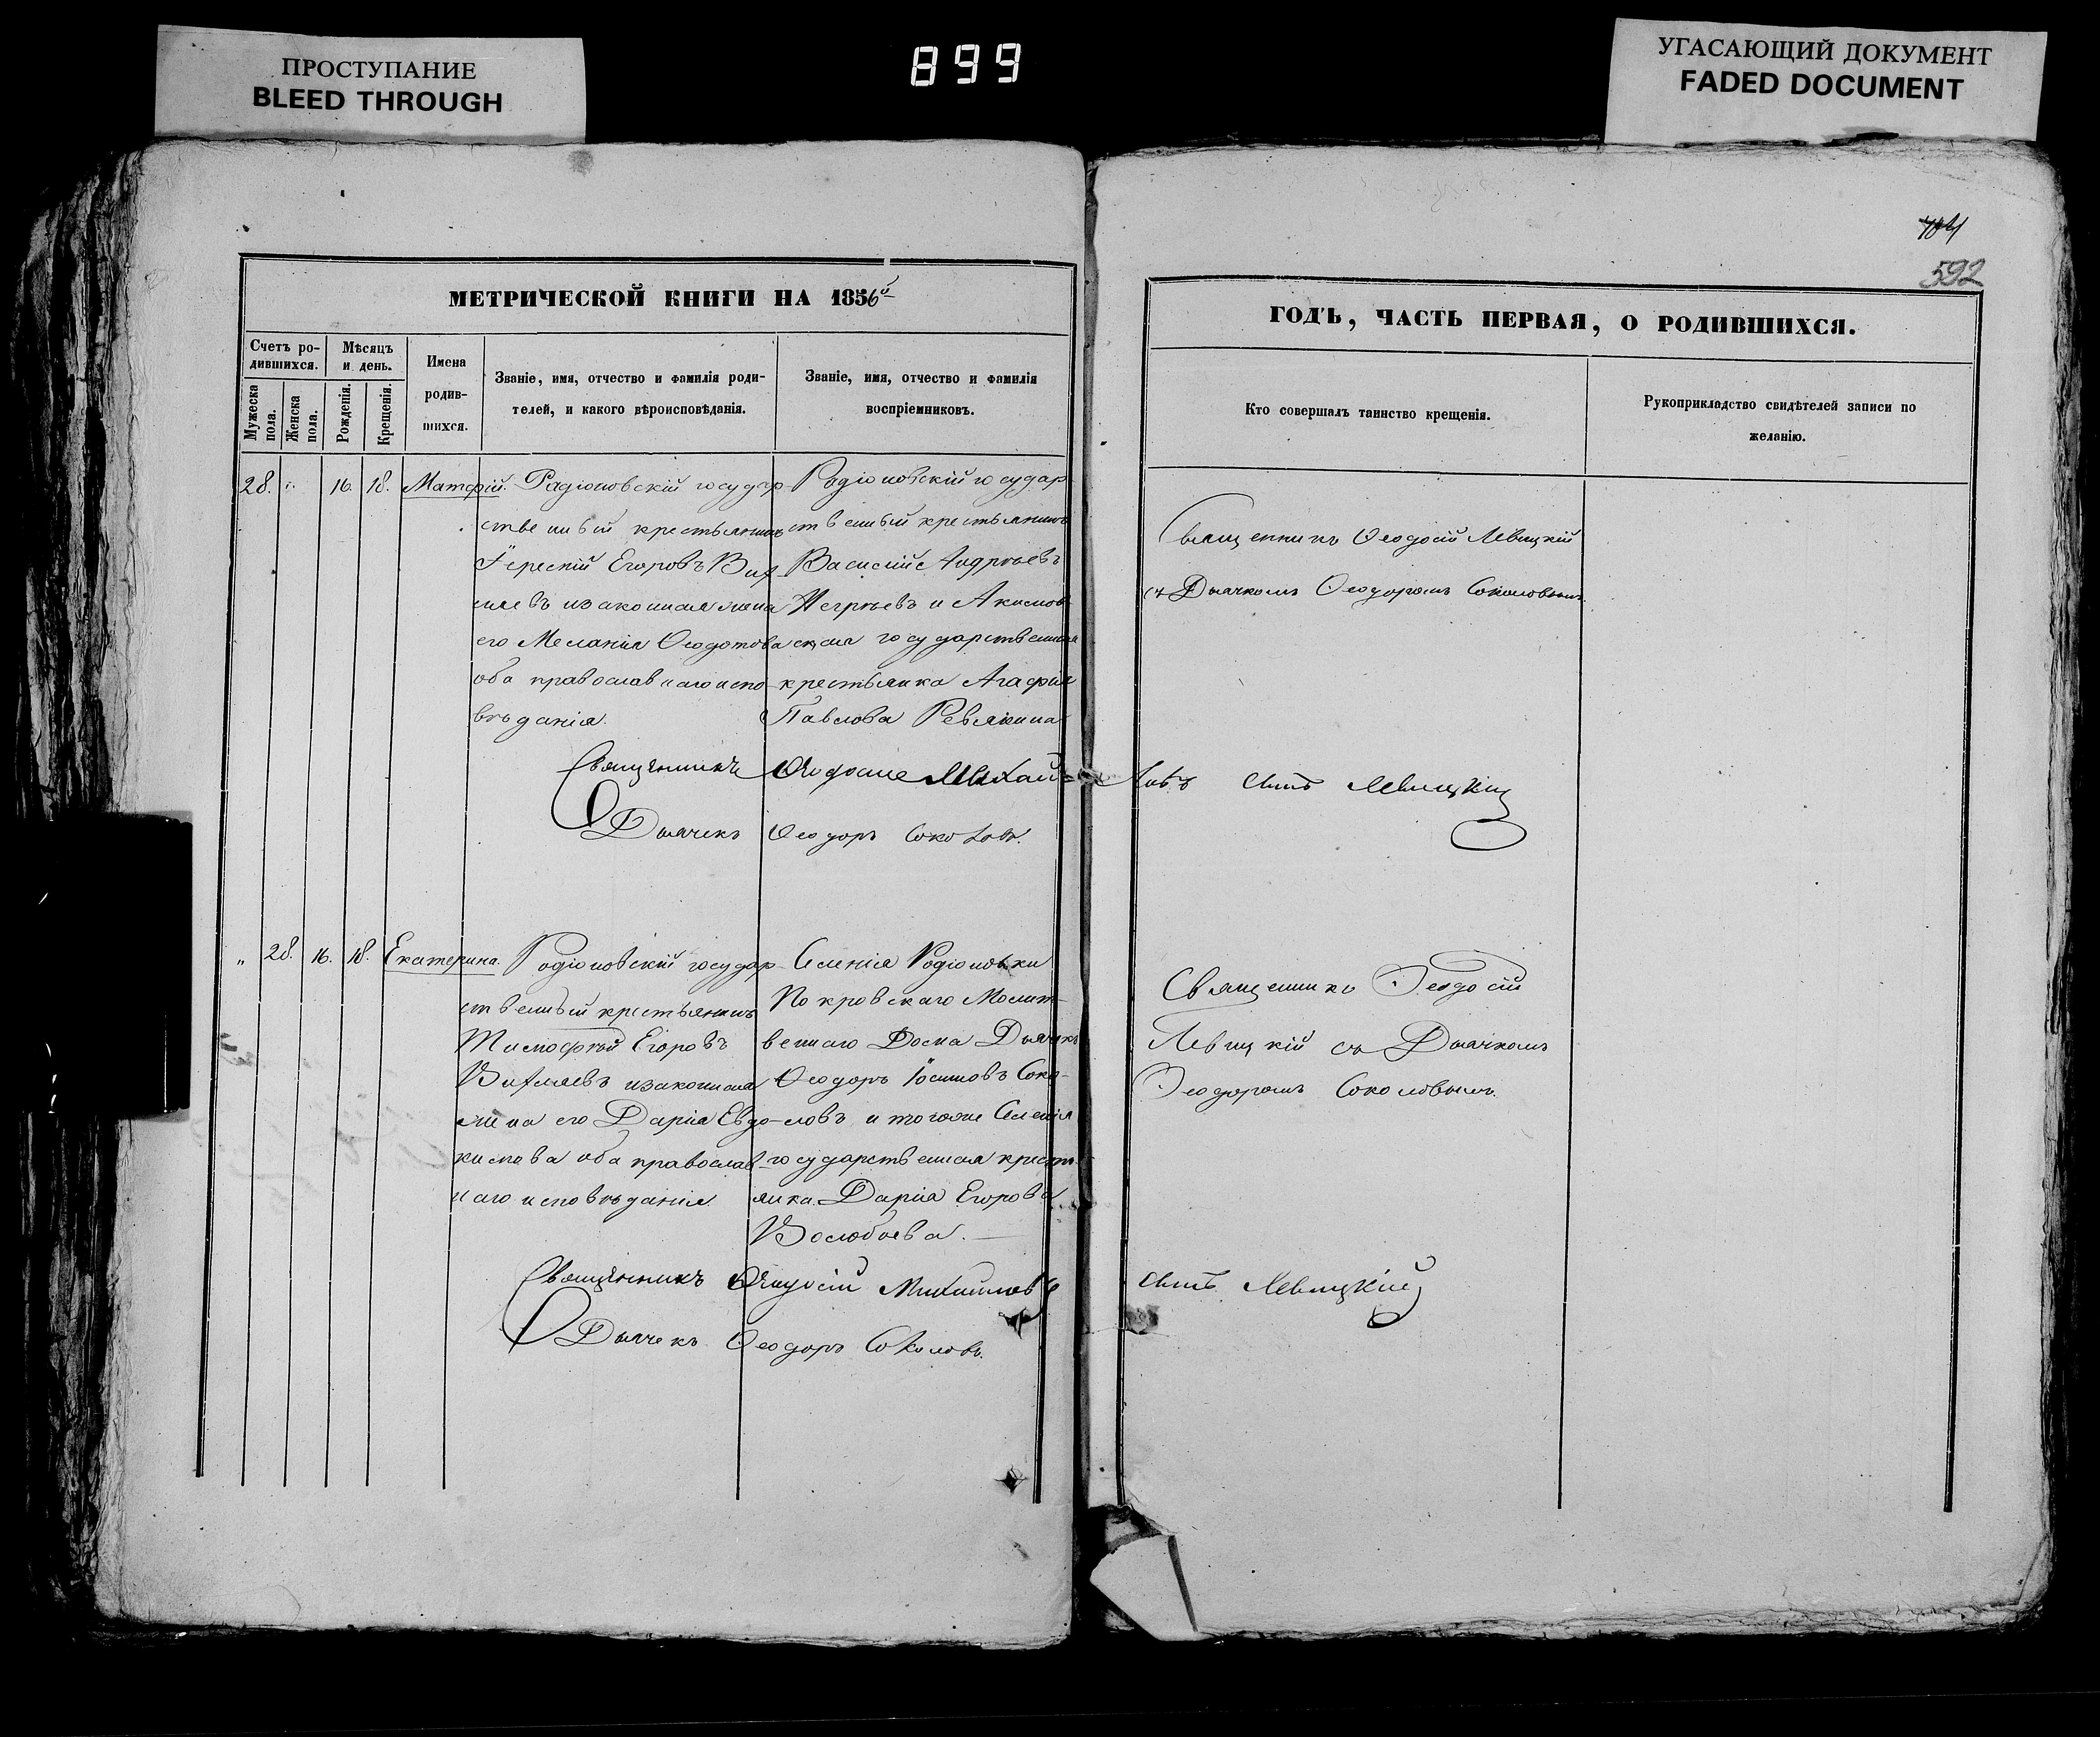 ПРОСТУПАНИЕ
BLEED THROUGH
899
УГАСАЮЩИЙ ДОКУМЕНТ
FADED DOCUMENT
592
МЕТРИЧЕСКОЙ КНИГИ НА 1856й
Счетъ ро-
дившихся.
Мужеска пола.
Женска пола.
Мѣсяцъ
и день.
Рожденія.
Крещенія.
Имена
родив-
шихся.
Званіе, имя, отчество и фамилія роди-
телей, и какого вѣроисповѣданія.
Званіе, имя, отчество и фамилія
воспріемниковъ.
28. 16. 18. Матфій.
Радіоновскій государ-
ственный крестьянинъ
Егоровъ
законная жена
его Меланія Ѳеодотова
оба православнаго испо-
вѣданія.
Родіоновскій государ-
ственный крестьянинъ
Василій Андреевъ
и Акимов-
ская государственная
крестьянка Агафія
Павлова Ревякина
Священникъ Ѳеодосие Михай=
ловъ сынъ Левицкій
Дьячекъ Ѳеодоръ Соколовъ.
„ 28. 16. 18. Екатерина.
Родіоновскій государ-
ственный крестьянинъ
Тимофѣй Егоровъ
законная
жена его Дарія Евдо-
кимова оба православ-
наго исповѣданія
Селенія Родіоновки
Покровскаго Молит-
веннаго Дома Дьячекъ
Ѳеодоръ Іосиповъ Соко-
ловъ и тогоже Селенія
государственная кресть-
янка Дарія Егорова
Волобоева.
Священникъ Ѳеодосій Михайловъ
сынъ Левицкій
Дьячекъ Ѳеодоръ Соколовъ.
ГОДЪ, ЧАСТЬ ПЕРВАЯ, О РОДИВШИХСЯ.
Кто совершалъ таинство крещенія.
Рукоприкладство свидѣтелей записи по
желанію.
Священникъ Ѳеодосій Левицкій
съ Дьячкомъ Ѳеодоромъ Соколовымъ
Священникъ Ѳеодосій
Левицкій съ Дьячкомъ
Ѳеодоромъ Соколовымъ.